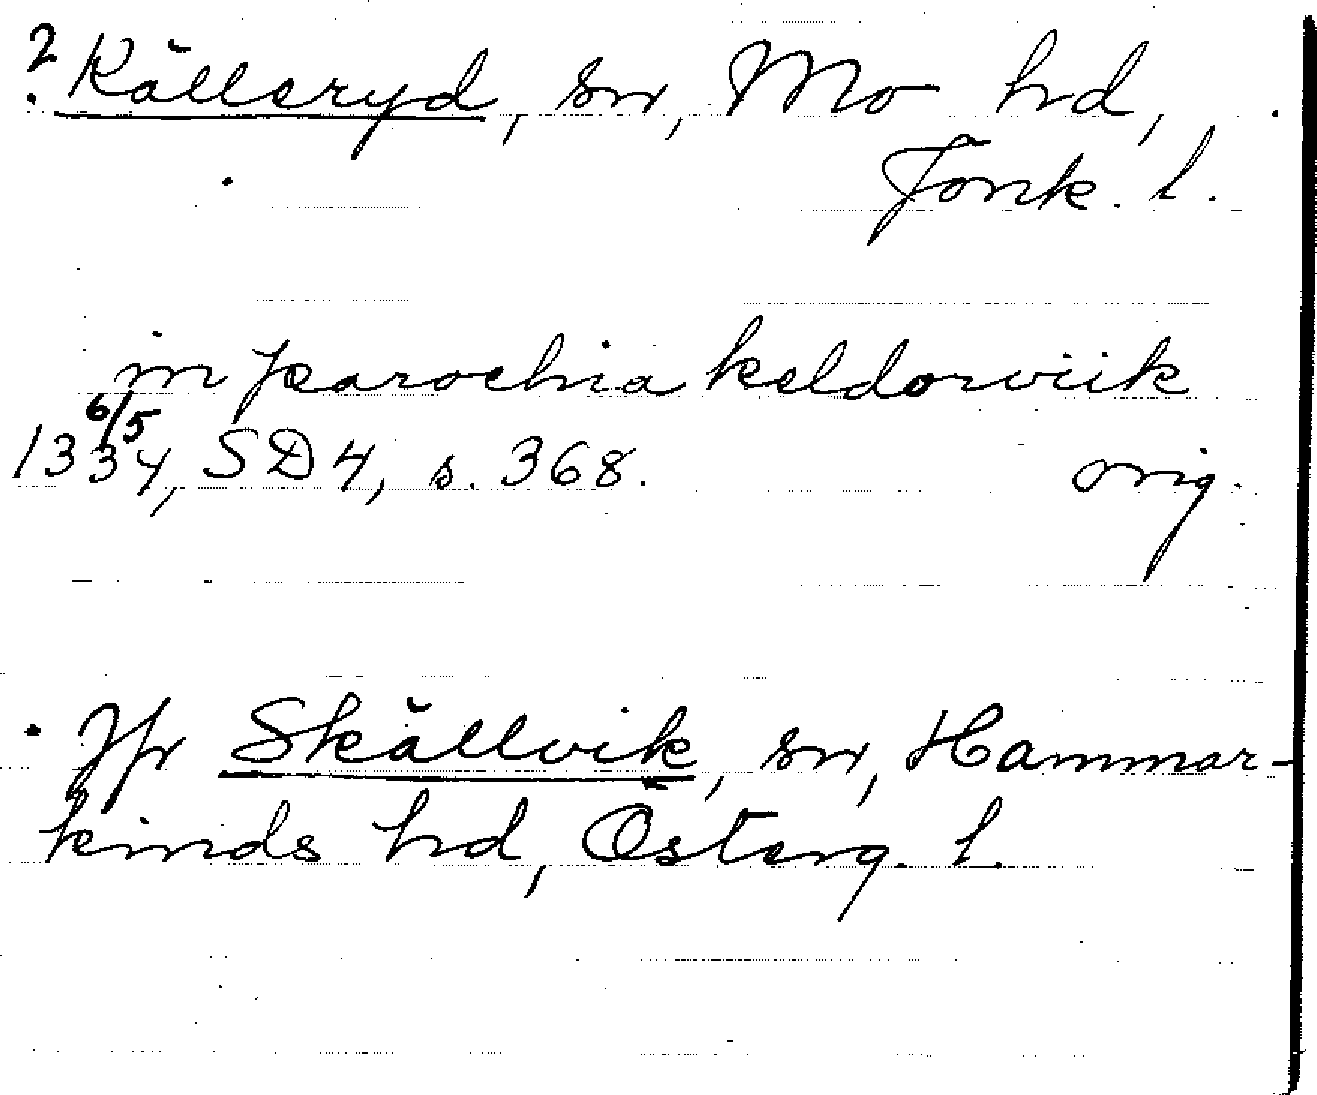 ? Källeryd, sn, Mo hd,
Jönk. l.
in parochia keldorwiik
6/5
1334, SD 4, s. 368. orig.
Jfr Skällvik, sn, Hammar-
kinds hd, Österg. l.